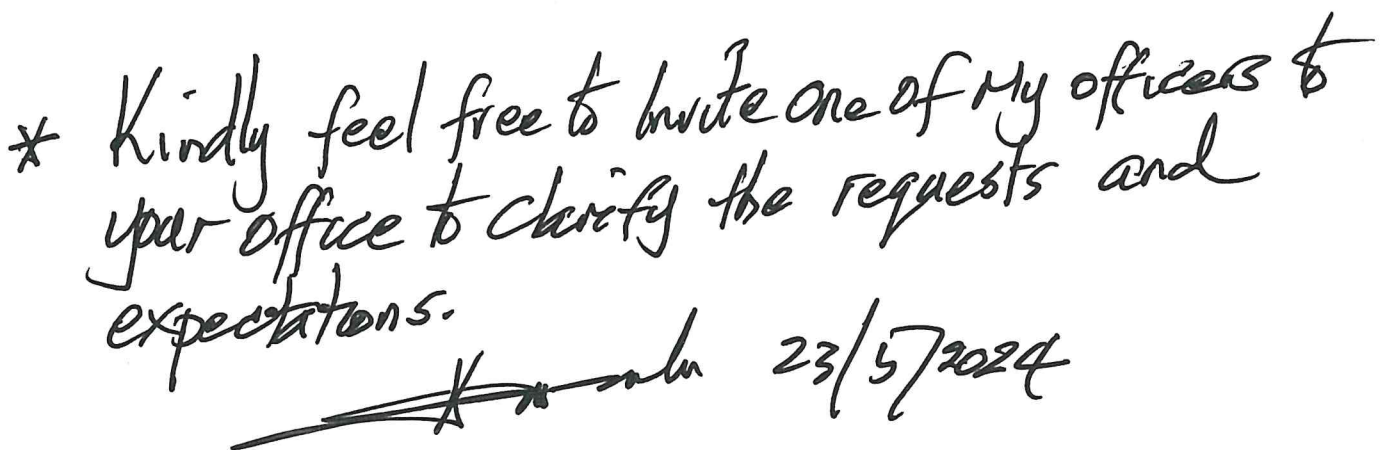 * Kindly feel free to Invite One of My officers to
your office to Clarify the requests and
expectations.
23/5/2024